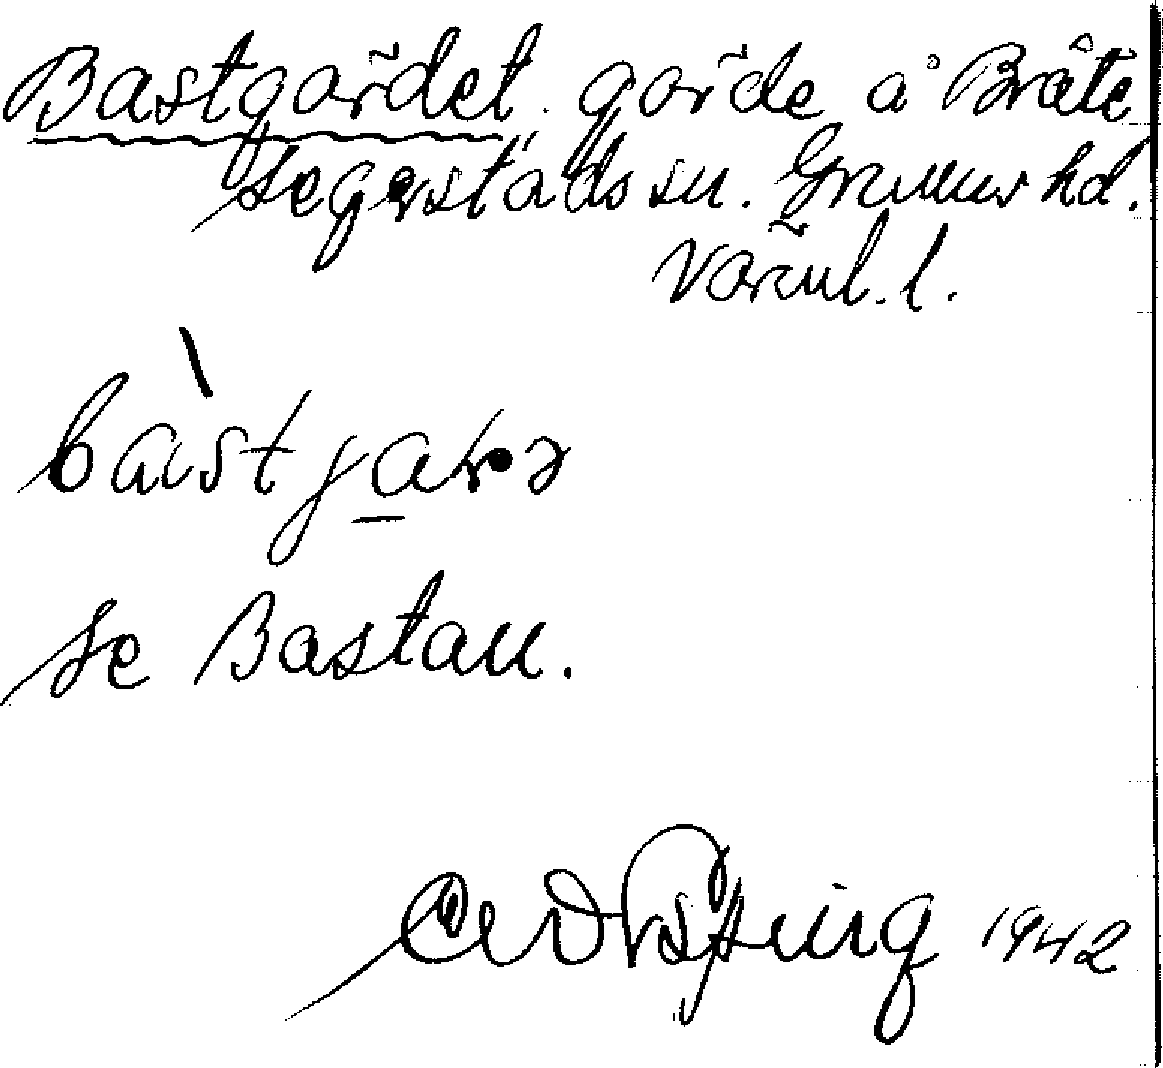 Bastgärdet gärde å Bråte
Segerstads sn. Grums hd.
Värml. l.
Se Bastan.
1942